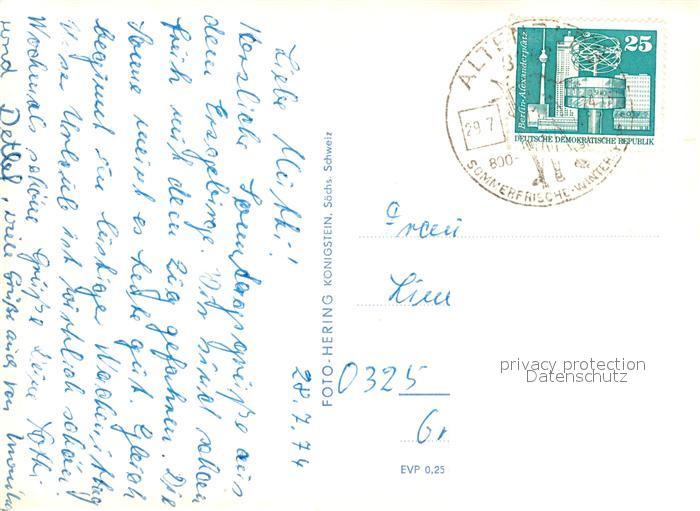 Liebe Mutti!
Herzliche Sonntagsgrüße aus
dem Erzgebirge. Wir sind schon
früh mit dem Zug gefahren. Die
Sonne meint es heute gut. Gleich
beginnt ein lustiger Nachmittag
Unser Urlaub ist wirklich schön.
Nochmals schöne Grüße Deine
und Detlef, viele Grüße auch von
28.7.74
FOTO-HERING KÖNIGSTEIN, Sächs. Schweiz
ALTEN
29.7
800-
SOMMERFRISCHE-WINTER
Berlin-Alexanderplatz
25
DEUTSCHE DEMOKRATISCHE REPUBLIK
Frau
0325
Gr
EVP 0,25
privacy protection
Datenschutz